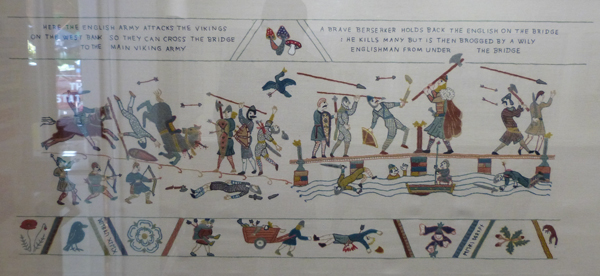 HERE THE ENGLISH ARMY ATTACKS THE VIKINGS
ON THE WEST BANK SO THEY CAN CROSS THE BRIDGE
TO THE MAIN VIKING ARMY
A BRAVE BERSERKER HOLDS BACK THE ENGLISH ON THE BRIDGE
HE KILLS MANY BUT IS THEN BROGGED BY A WILY
ENGLISHMAN FROM UNDER THE BRIDGE